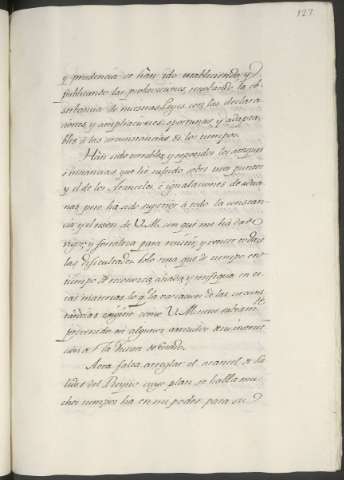 127
y prudencia se han ido estableciendo y
publicando las providencias, arreglando la ob-
servancia de nuestras Leyes con las declara-
ciones, y ampliaciones oportunas, y adapta-
bles á las circunstancias de los tiempos.
Han sido notables, y repetidos los ataques
é instancias que he sufrido sobre unos puntos
y el de los Aranceles, é igualaciones de adua-
nas; pero ha sido superior á todo la constan-
cia y el tesón de V.M. con que me ha dado
vigor y fortaleza para resistir, y vencer todas
las dificultades. Solo una que de tiempo en
tiempo se renueva, añada y rectifique en es-
tas materias lo q.e la variacion de las circuns-
tancias exigiere, como V.M. tiene
prevenido en algunos articulos de su instruc-
cion á la Junta de Estado.
Aora falta arreglar el arancel de sa-
lidas del Reyno cuyo plan se halla mu-
cho tiempo ha en mi poder para su